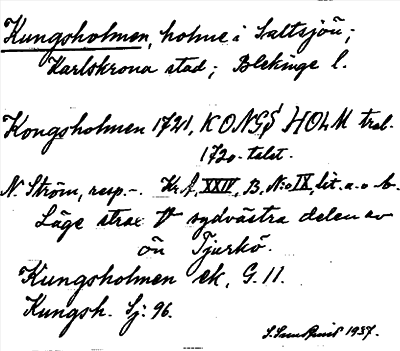 Kungsholmen, holme i Saltsjön;
Karlskrona stad; Blekinge l.
Kongsholmen 1721, KONGS HOLM trol.
1720-talet.
N. Ström, resp.-. Kr.A, XXIV, B. N:o IX, lit. a. o b.
Läge strax V sydvästra delen av
ön Tjurkö.
Kungsholmen ek. G. 11.
Kungsh. Sj: 96.
1937.